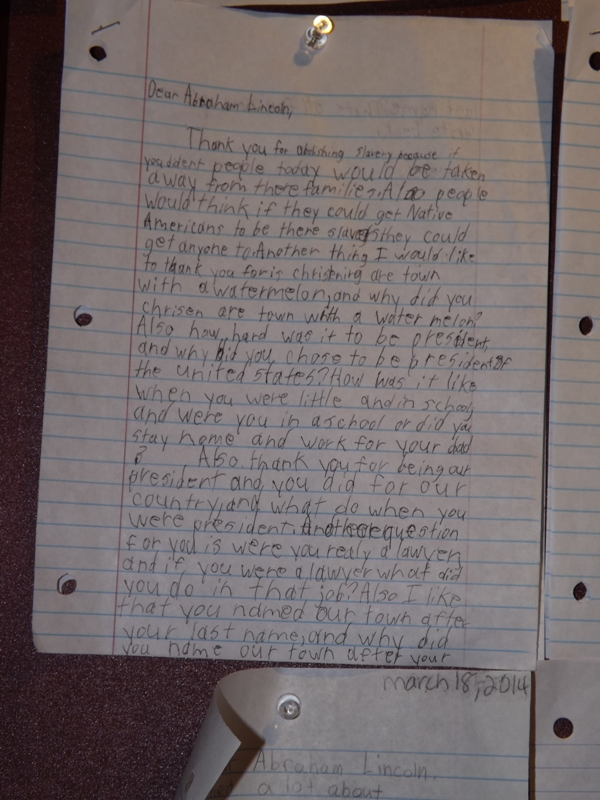 Dear Abraham Lincoln,
Thank you for abolishing slavery because if
you dident people today would be taken
away from there families. Also people
would think if they could get Native
Americans to be there slaves they could
get anyone to. Another thing I would like
to thank you for is christning are town
with a watermelon, and why did you
chrisen are town with a water melon?
Also how hard was it to be president,
and why did you chose to be president of
the united states? How was it like
when you were little and in school,
and were you in a school or did you
stay home and work for your dad
? Also thank you for being our
president and you did for our
country, and what do when you
were president. Another question
for you is were you realy a lawyer,
and if you were a lawyer what did
you do in that job? Also I like
that you named our town after
your last name, and why did
you name our town after your
march 18, 2014
Abraham Lincoln,
a lot about